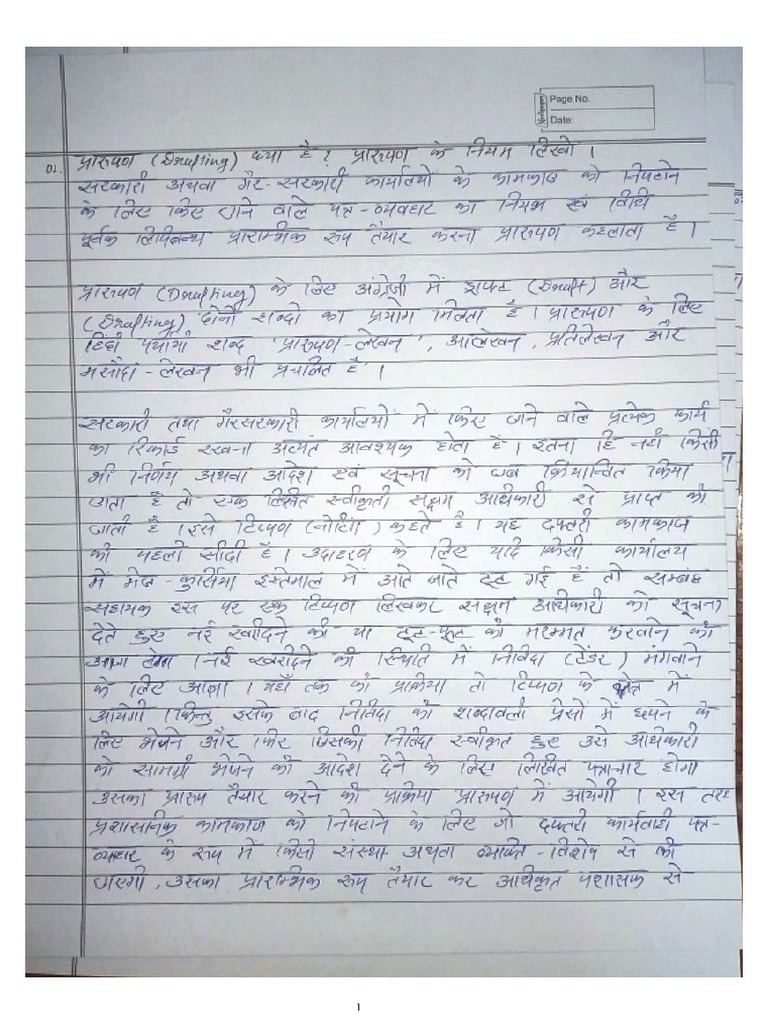 Page No.
Date:
01. प्रारूपण (Drafting) क्या है? प्रारूपण के नियम लिखो।
सरकारी अथवा गैर-सरकारी कार्यालयों के कामकाज को निपटाने
के लिए किए जाने वाले पत्र-व्यवहार का नियम एवं विधि
पूर्वक लिपिबन्ध प्रारम्भिक रूप तैयार करना प्रारूपण कहलाता है।
प्रारूपण (Drafting) के लिए अंग्रेजी में ड्राफ्ट (Draft) और
(Drafting) दोनों शब्दो का प्रयोग मिलता है। प्रारूपण के लिए
हिंदी पर्यायी शब्द 'प्रारूपण-लेखन', आलेखन, प्रतिलेखन और
मसौदा-लेखन भी प्रचलित है।
सरकारी तथा गैरसरकारी कार्यालयों में किए जाने वाले प्रत्येक कार्य
का रिकार्ड रखना अत्यंत आवश्यक होता है। इतना हि नही किसी
भी निर्णय अथवा आदेश एवं सूचना को जब क्रियान्वित किया
जाता है तो एक लिखित स्वीकृती सक्षम अधिकारी से प्राप्त की
जाती है। इसे टिप्पण (नोटिंग) कहते है। यह दफ्तरी कामकाज
की पहली सीढी है। उदाहरण के लिए यदि किसी कार्यालय
में मेज-कुर्सिया इस्तेमाल में आते जाते टूट गई हैं तो सम्बंध
सहायक इस पर एक टिप्पण लिखकर सक्षम अधिकारी को सूचना
देते हुए नई खरीदने की या टूट-फूट की मरम्मत करवाने की
आज्ञा लेगा। नई खरीदने की स्थिति में निविदा (टेंडर) मंगवाने
के लिए आज्ञा। यहाँ तक की प्रक्रिया तो टिप्पण के क्षेत्र में
आयेगी। किन्तु इसके बाद निविदा की शब्दावली प्रेसों में छपने के
लिए भेजने और फिर जिसकी निविदा स्वीकृत हुए उसे अधिकारी
को सामग्री भेजने की आदेश देने के लिए लिखित पत्राचार होगा
उसका प्रारूप तैयार करने की प्रक्रिया प्रारूपण में आयेगी। इस तरह
प्रशासनिक कामकाज को निपटाने के लिए जो दफ्तरी कार्यवाही पत्र-
व्यवहार के रूप में किसी संस्था अथवा व्यक्ति-विशेष से की
जाएगी, उसका प्रारम्भिक रूप तैयार कर अधिकृत प्रशासक से
1